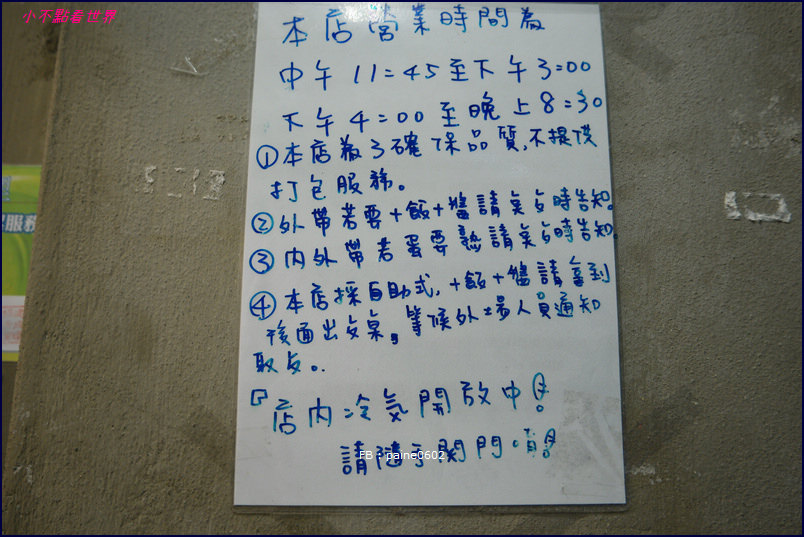 小不點看世界
本店營業時間為
中午 11:45至下午3:00
下午4:00至晚上8:30
①本店為了確保品質,不提供
打包服務。
②外帶若要+飯+醬請點時告知。
③內外帶若蛋要熟請點時告知.
④本店採自助式,+飯+醬請拿到
後面出桌,等候外場人員通知
取。
店內冷氣開放中!
請隨手關門
FB:paine0602
服務